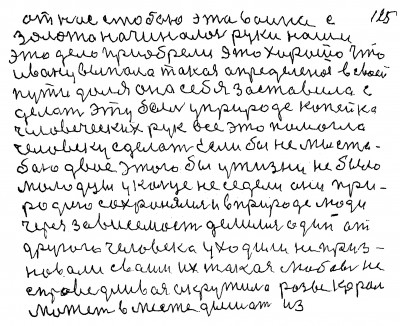 от нас с тобою эта волна с 125
золота начинался руки наши
это дело приобрели это хорошо что
ивану выпала такая определеная в своей
пути доля она себя заставила с
делат эту была у природе копейка
человеческих рук все это помогла
человеку сделат если бы не мы ста-
бою двое этого бы у жизни не было
молодцы у конце не седели они при-
родою сохранялися в природе люди
через зависемост делилися один от
другого человека уходили не приз-
новали сваших такая любов не
справедливая окружила разве король
может вместе дышат из